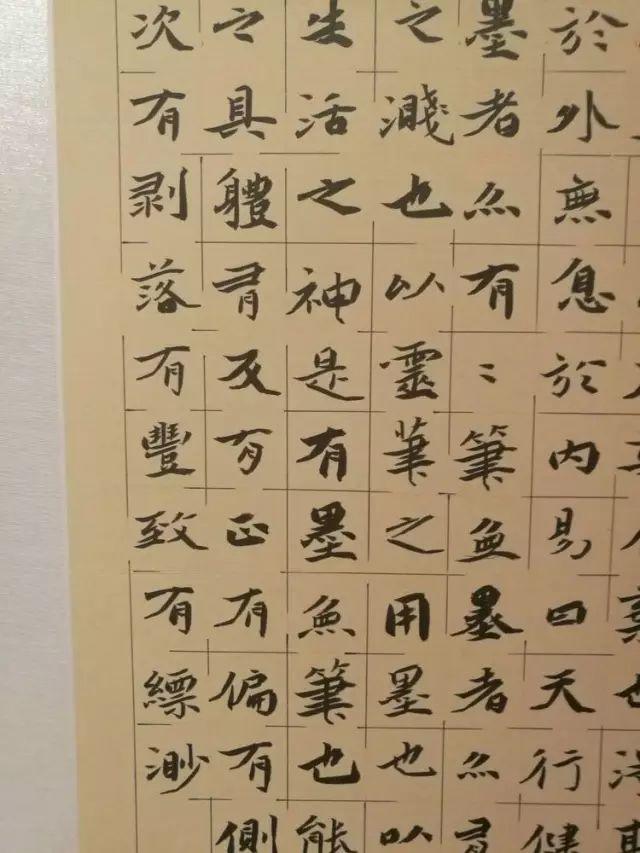 於外無息於内易曰天行健
墨者亦有〻筆無墨者亦有
之濺也以靈筆之用墨也以
生活之神是有墨無筆也能
之具體有反有正有偏有側
次有剥落有豐致有縹渺